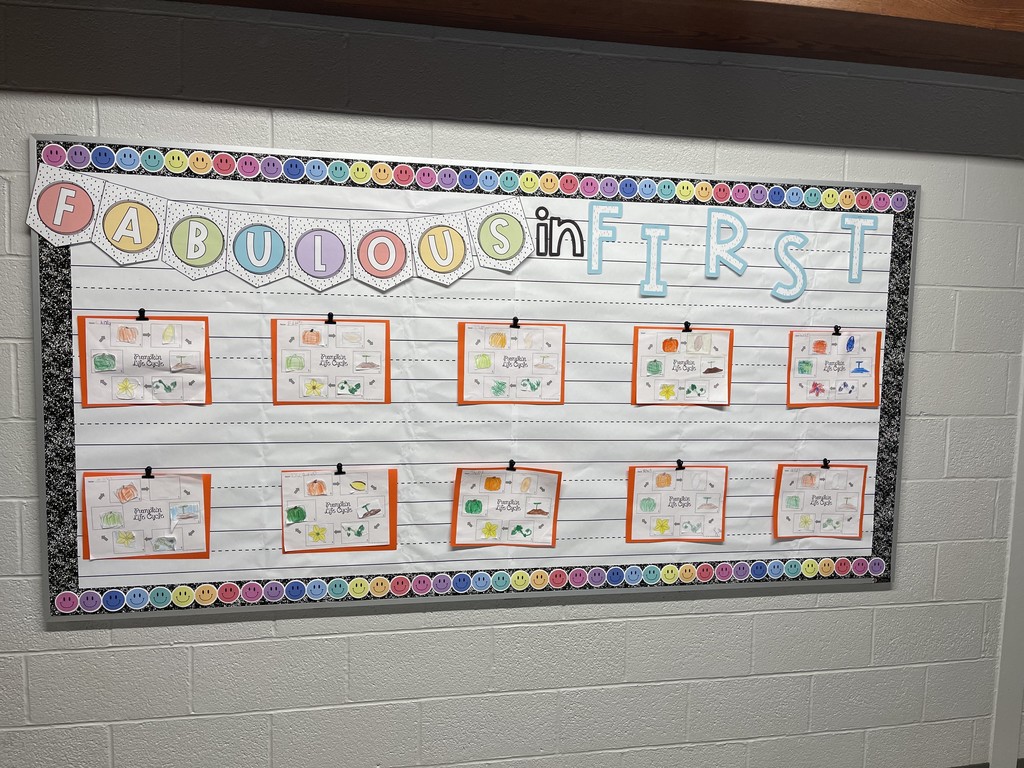 FABULOUS in FIRST
Pumpkin
Life Cycle
Pumpkin
Life Cycle
Pumpkin
Life Cycle
Pumpkin
Life Cycle
Pumpkin
Life Cycle
Pumpkin
Life Cycle
Pumpkin
Life Cycle
Pumpkin
Life Cycle
Pumpkin
Life Cycle
Pumpkin
Life Cycle